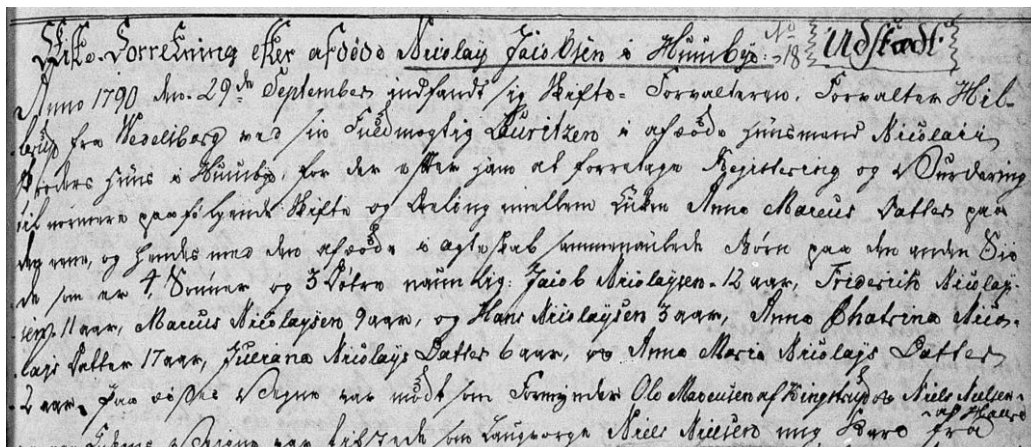 Skifte-Forretning efter afdøde Nicolay Jacobsen i Huusbÿe. No 18 Udstædt
Anno 1790 den 29de September indfandt sig Skifte-Forvalteren, Forvalter Hil-
fra Wedelsborg ved sin Fuldmægtig Lauritzen i afdøde Huusmand Nicolaii
Huus i Huusbÿe, for der efter ham at foretage Registering og Vurdering
til nærmere paafølgende Skifte og Deeling imellem Enken Anna Marcus Datter paa
den eene, og hendes med den afdøde i ægteskab sammenavlede Børn paa den anden Sii-
de som er 4 Sønner og 3 Døtre naunlig: Jacob Nicolaysen 12 aar, Friderich Nicolay-
sen 11 aar, Marcus Nicolaysen 9 aar, og Hans Nicolaysen 3 aar, Anna Chatrina Nico-
lays Datter 17 aar, Juliana Nicolays Datter 6 aar, og Anna Maria Nicolays Datter
2 aar. Paa disses Vegne var mødt som Formynder Ole Marcusen af Ringstrup og Niels Nielsen
af
Enkens Vegne var tilstede som Laugværge Niels Nielsen fra